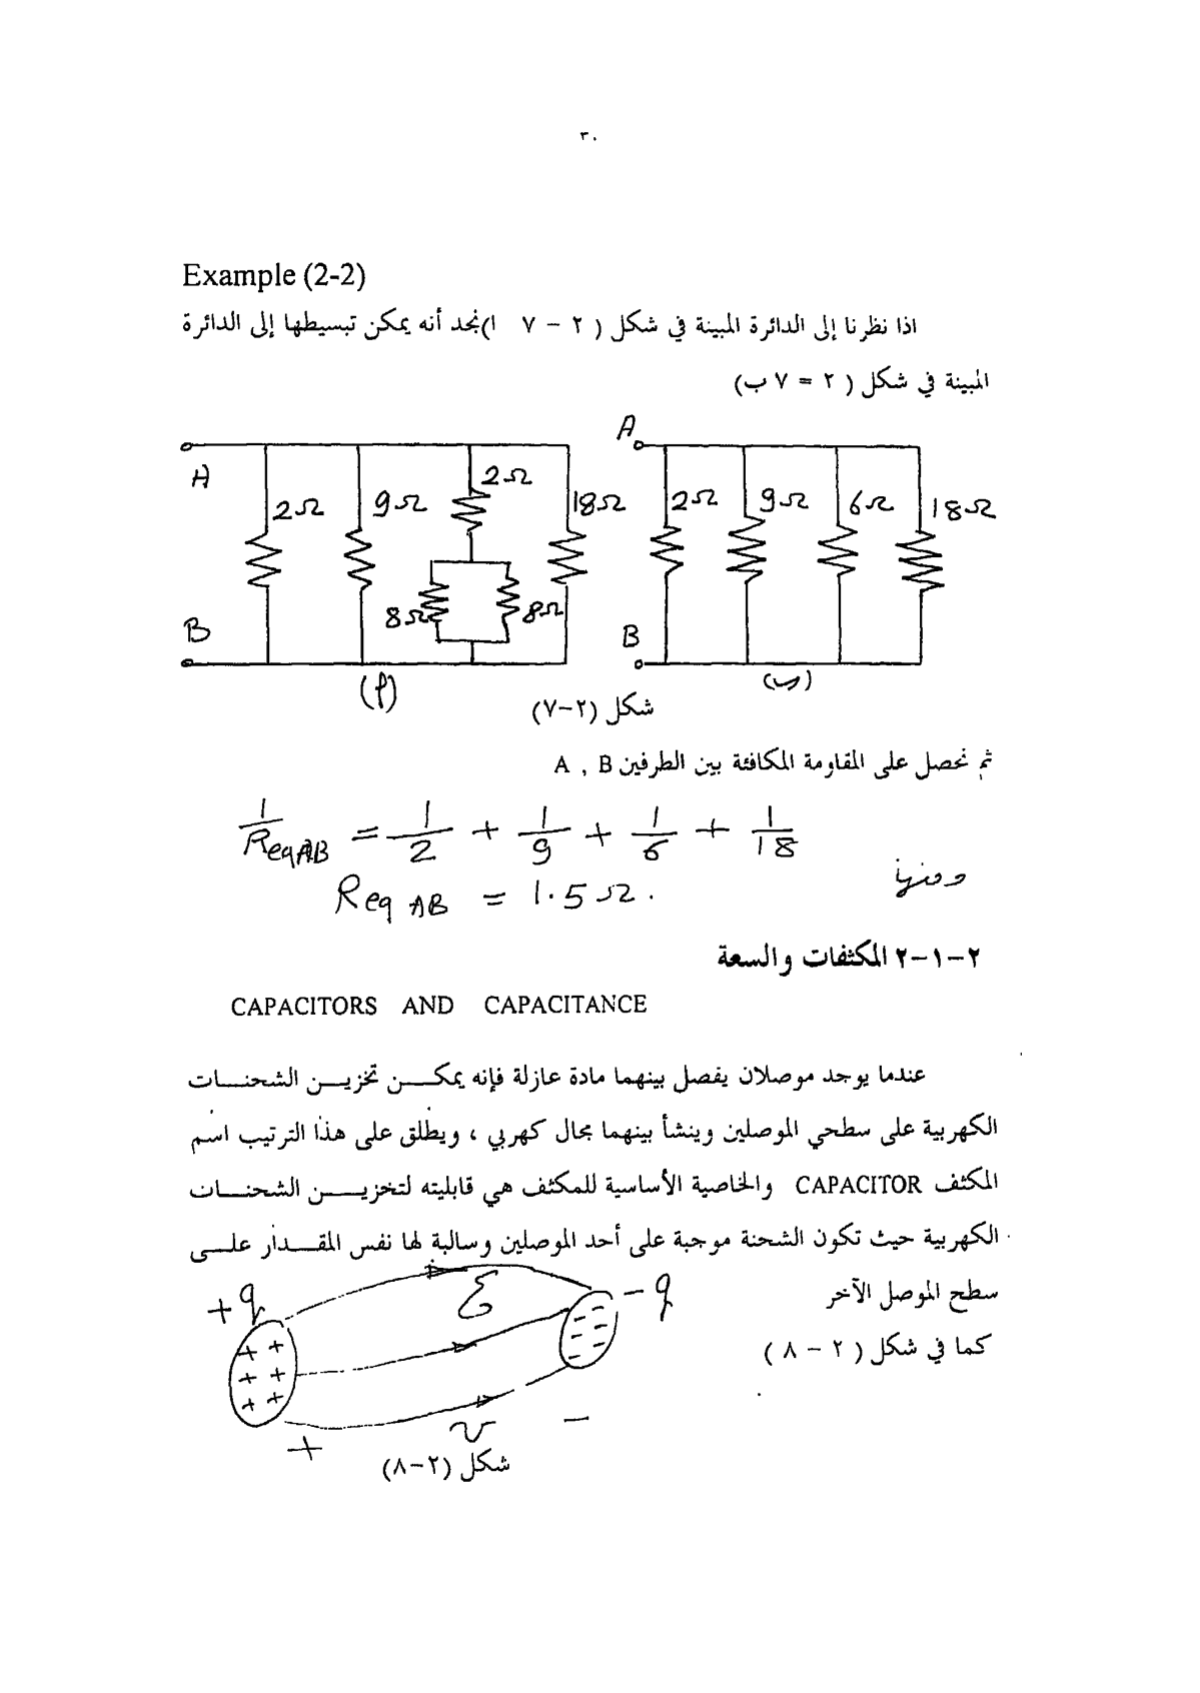 ٣٠
Example (2-2)
اذا نظرنا إلى الدائرة المبينة في شكل ( ٢ – ٧ ا)نجد أنه يمكن تبسيطها إلى الدائرة
المبينة في شكل ( ٢ = ٧ ب)
A
B
2Ω
9Ω
2Ω
8Ω
8Ω
18Ω
(أ)
A
B
2Ω
9Ω
6Ω
18Ω
(ب)
شكل (٢–٧)
ثم نحصل على المقاومة المكافئة بين الطرفين A , B
1/ReqAB = 1/2 + 1/9 + 1/6 + 1/18
ومنها
Req AB = 1.5 Ω.
٢–١–٢ المكثفات والسعة
CAPACITORS AND CAPACITANCE
عندما يوجد موصلان يفصل بينهما مادة عازلة فإنه يمكـــن تخزيـــن الشحنـــات
الكهربية على سطحي الموصلين وينشأ بينهما مجال كهربي ، ويطلق على هذا الترتيب اسم
المكثف CAPACITOR والخاصية الأساسية للمكثف هي قابليته لتخزيـــن الشحنـــات
الكهربية حيث تكون الشحنة موجبة على أحد الموصلين وسالبة لها نفس المقـــدار علـــى
سطح الموصل الآخر
كما في شكل ( ٢ – ٨ )
+q
ℰ
-q
+ +
+ +
+ +
– –
– –
– –
+
v
–
شكل (٢–٨)